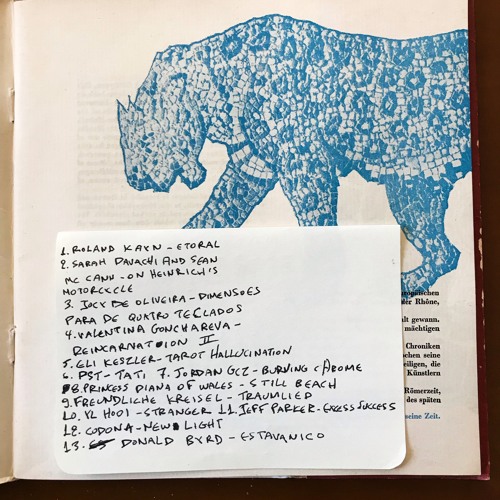 1. ROLAND KAYN - ETORAL
2. SARAH DAVACHI AND SEAN
MC CANN - ON HEINRICH'S
MOTORCYCLE
3. JOCY DE OLIVEIRA - DIMENSOES
PARA DE QUATRO TECLADOS
4. VALENTINA GONCHAREVA -
REINCARNATION II
5. ELI KESZLER - TAROT HALLUCINATION
6. PST - TATI 7. JORDAN GCZ - BURNING CHROME
8. PRINCESS DIANA OF WALES - STILL BEACH
9. FREUNDLICHE KREISEL - TRAUMLIED
10. YL HOOI - STRANGER 11. JEFF PARKER - EXCESS SUCCESS
12. CODONA - NEW LIGHT
13. DONALD BYRD - ESTAVANICO
der Rhône,
alt gewann.
mächtigen
Chroniken
schen seine
eiligen, die
Künstlern
Römerzeit,
des späten
seine Zeit.